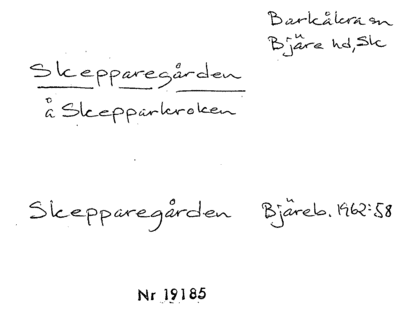 Barkåkra sn
Bjäre hd, Sk
Skepparegården
å Skepparkroken
Skepparegården Bjäreb. 1962:58
Nr 19185